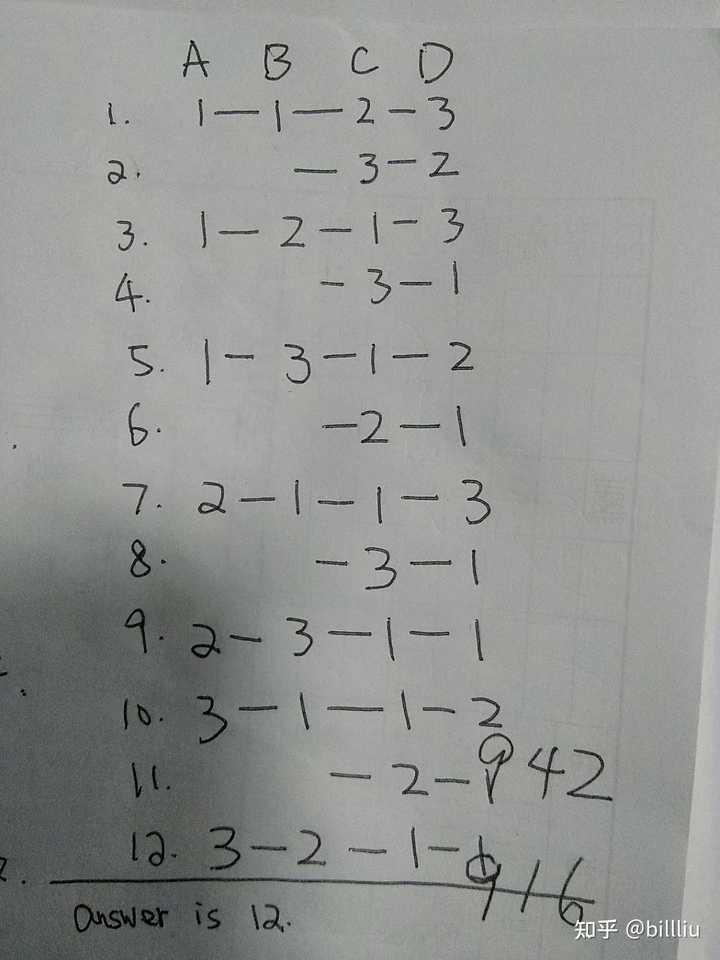 A B C D
1. 1-1-2-3
2. -3-2
3. 1-2-1-3
4. -3-1
5. 1-3-1-2
6. -2-1
7. 2-1-1-3
8. -3-1
9. 2-3-1-1
10. 3-1-1-2
11. -2- 942
12. 3-2-1-1
916
Answer is 12.
知乎 @billliu